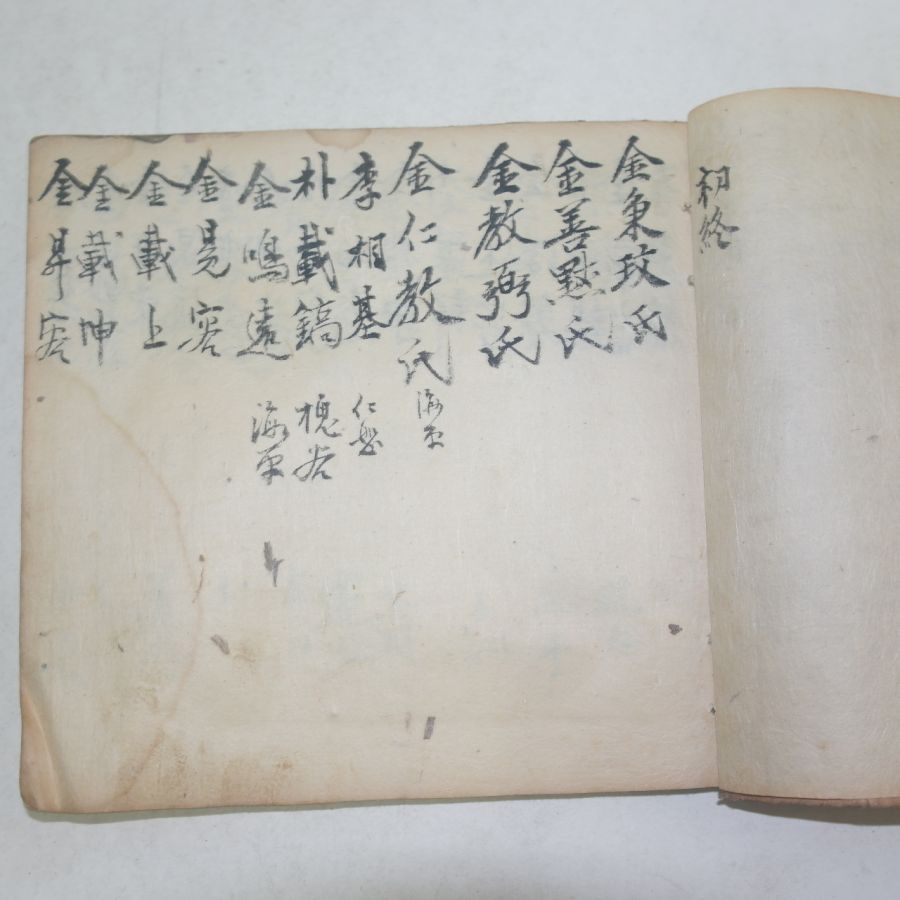 初終
金秉玟氏
金善黙氏
金教弼氏
金仁教氏 海平
李相基 仁興
朴載鎬 槐谷
金鳴遠 海平
金晃容
金載上
金載坤
金昇容